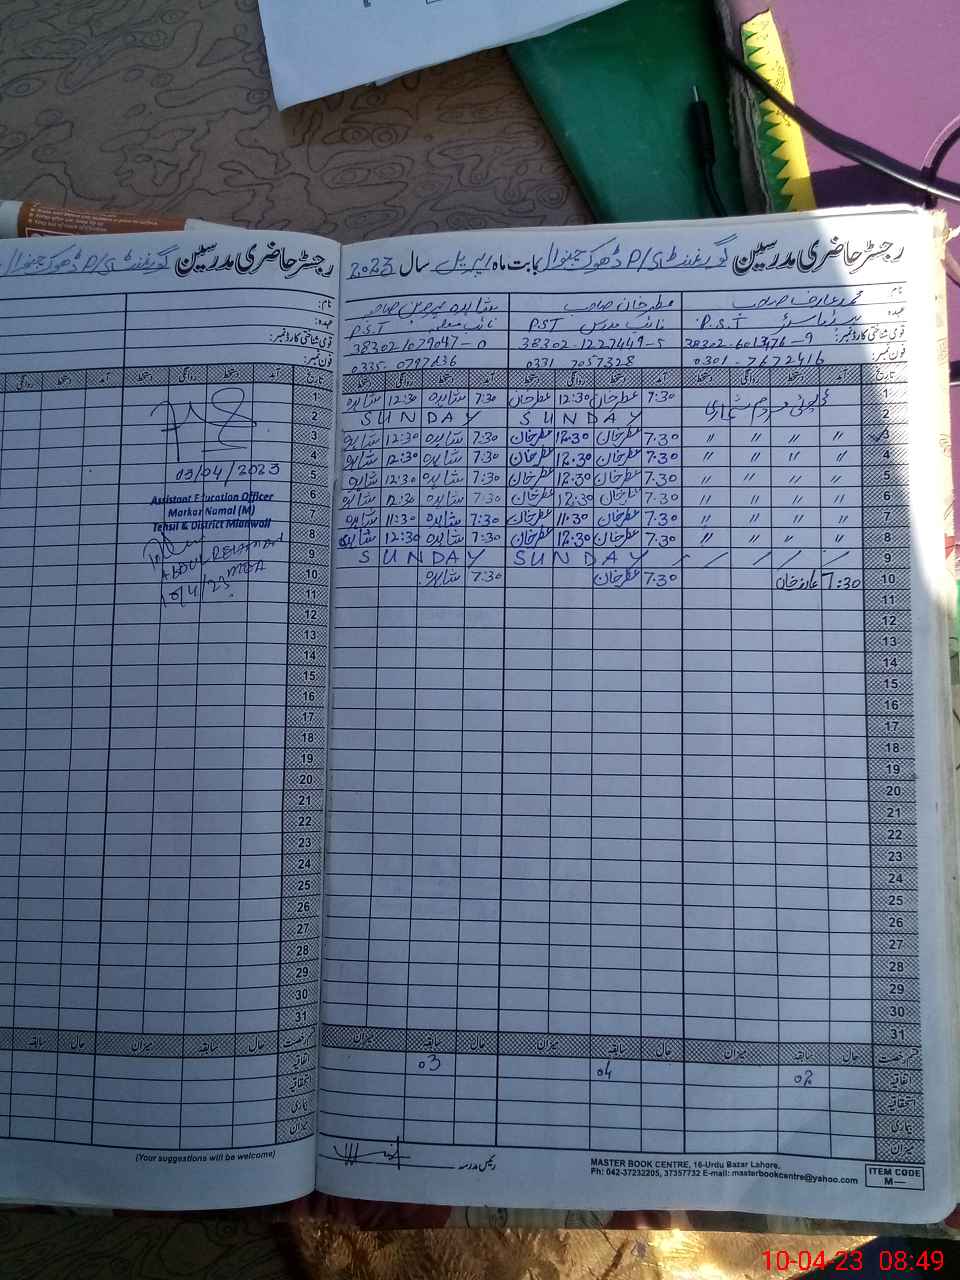 رجسٹر حاضری مدرسین گورنمنٹ P/S ڈھوک
رجسٹر حاضری مدرسین گورنمنٹ P/S ڈھوک بابت ماہ اپریل سال 2023
نام: محمد عارف صاحب عطر خان صاحب شاہدہ پروین صاحبہ
عہدہ: P.S.T نائب مدرس PST نائب معلمہ P.S.T
قومی شناختی کارڈ نمبر: 38302-6013476-9 38302-1227449-5 38302-1079047-0
فون نمبر: 0301-7672416 0331 7057328 0335-0797636
تاریخ آمد دستخط روانگی دستخط آمد دستخط روانگی دستخط آمد دستخط روانگی دستخط
1 ڈیوٹی مردم شماری 7:30 عطر خان 12:30 عطر خان 7:30 شاہدہ 12:30 شاہدہ
2 SUNDAY SUNDAY
3 〃 〃 〃 〃 7:30 عطر خان 12:30 عطر خان 7:30 شاہدہ 12:30 شاہدہ
4 〃 〃 〃 〃 7:30 عطر خان 12:30 عطر خان 7:30 شاہدہ 12:30 شاہدہ
5 〃 〃 〃 〃 7:30 عطر خان 12:30 عطر خان 7:30 شاہدہ 12:30 شاہدہ
6 〃 〃 〃 〃 7:30 عطر خان 12:30 عطر خان 7:30 شاہدہ 12:30 شاہدہ
7 〃 〃 〃 〃 7:30 عطر خان 11:30 عطر خان 7:30 شاہدہ 11:30 شاہدہ
8 〃 〃 〃 〃 7:30 عطر خان 12:30 عطر خان 7:30 شاہدہ 12:30 شاہدہ
9 / / / / SUNDAY SUNDAY
10 7:30 عارف خان 7:30 عطر خان 7:30 شاہدہ
11
12
13
14
15
16
17
18
19
20
21
22
23
24
25
26
27
28
29
30
31
قسم رخصت حال سابقہ میزان حال سابقہ میزان حال سابقہ میزان
اتفاقیہ 02 04 03
استحقاقیہ
بیماری
میزان
رئیس مدرسہ
MASTER BOOK CENTRE, 16-Urdu Bazar Lahore,
Ph: 042-37232205, 37357732 E-mail: masterbookcentre@yahoo.com
ITEM CODE
M—
نام:
عہدہ:
قومی شناختی کارڈ نمبر:
فون نمبر:
تاریخ آمد دستخط روانگی دستخط آمد دستخط روانگی
1
2
3
4
5
6
7
8
9
10
11
12
13
14
15
16
17
18
19
20
21
22
23
24
25
26
27
28
29
30
31
03/04/2023
Assistant Education Officer
Markaz Namal (M)
Tehsil & District Mianwali
ABDUL REHMAN
MEA
10/4/23
قسم رخصت حال سابقہ میزان حال سابقہ
اتفاقیہ
استحقاقیہ
بیماری
میزان
(Your suggestions will be welcome)
10-04-23 08:49